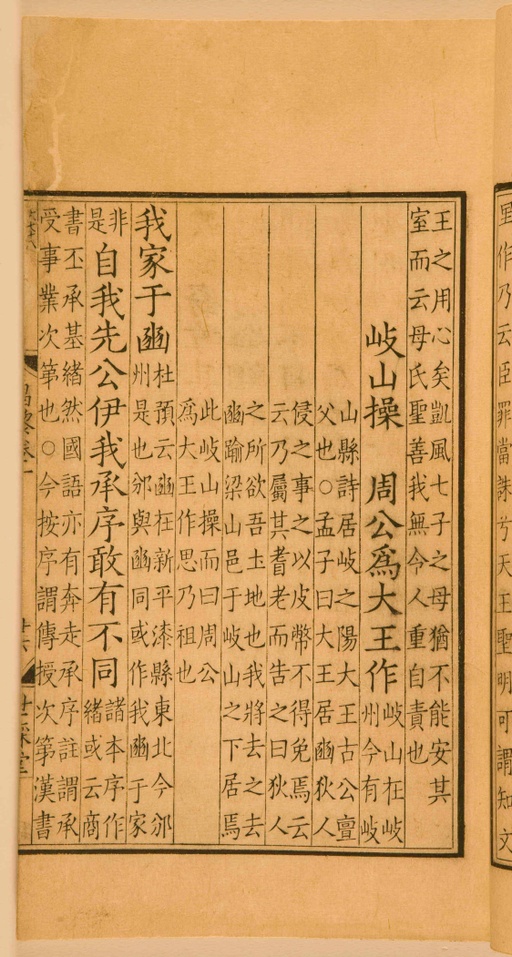 里作乃云臣罪當誅兮天王聖明可謂知文
王之用心矣凱風七子之母猶不能安其
室而云母氏聖善我無令人重自責也
岐山操 周公爲大王作 岐山在岐
州今有岐
山縣詩居岐之陽大王古公亶
父也○孟子曰大王居豳狄人
侵之事之以皮幣不得免焉云
云乃屬其耆老而告之曰狄人
之所欲吾土地也我將去之去
豳踰梁山邑于岐山之下居焉
此岐山操而曰周公
爲大王作思乃祖也
我家于豳 杜預云豳在新平漆縣東北今邠
州是也邠與豳同或作我豳于家
非
是
自我先公伊我承序敢有不同 諸本序作
緒或云商
書丕承基緒然國語亦有奔走承序註謂承
受事業次第也○今按序謂傳授次第漢書
昌黎卷一